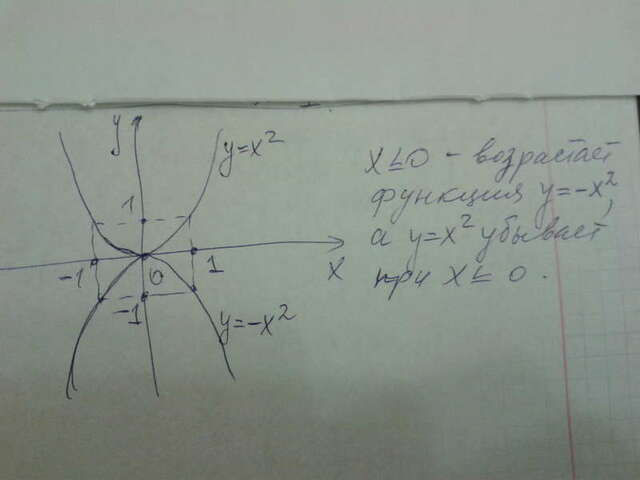 y
y=x²
1
-1
0
1
X
-1
y=-x²
x≤0 - возрастает
функция y=-x²,
а y=x² убывает
при x≤0.